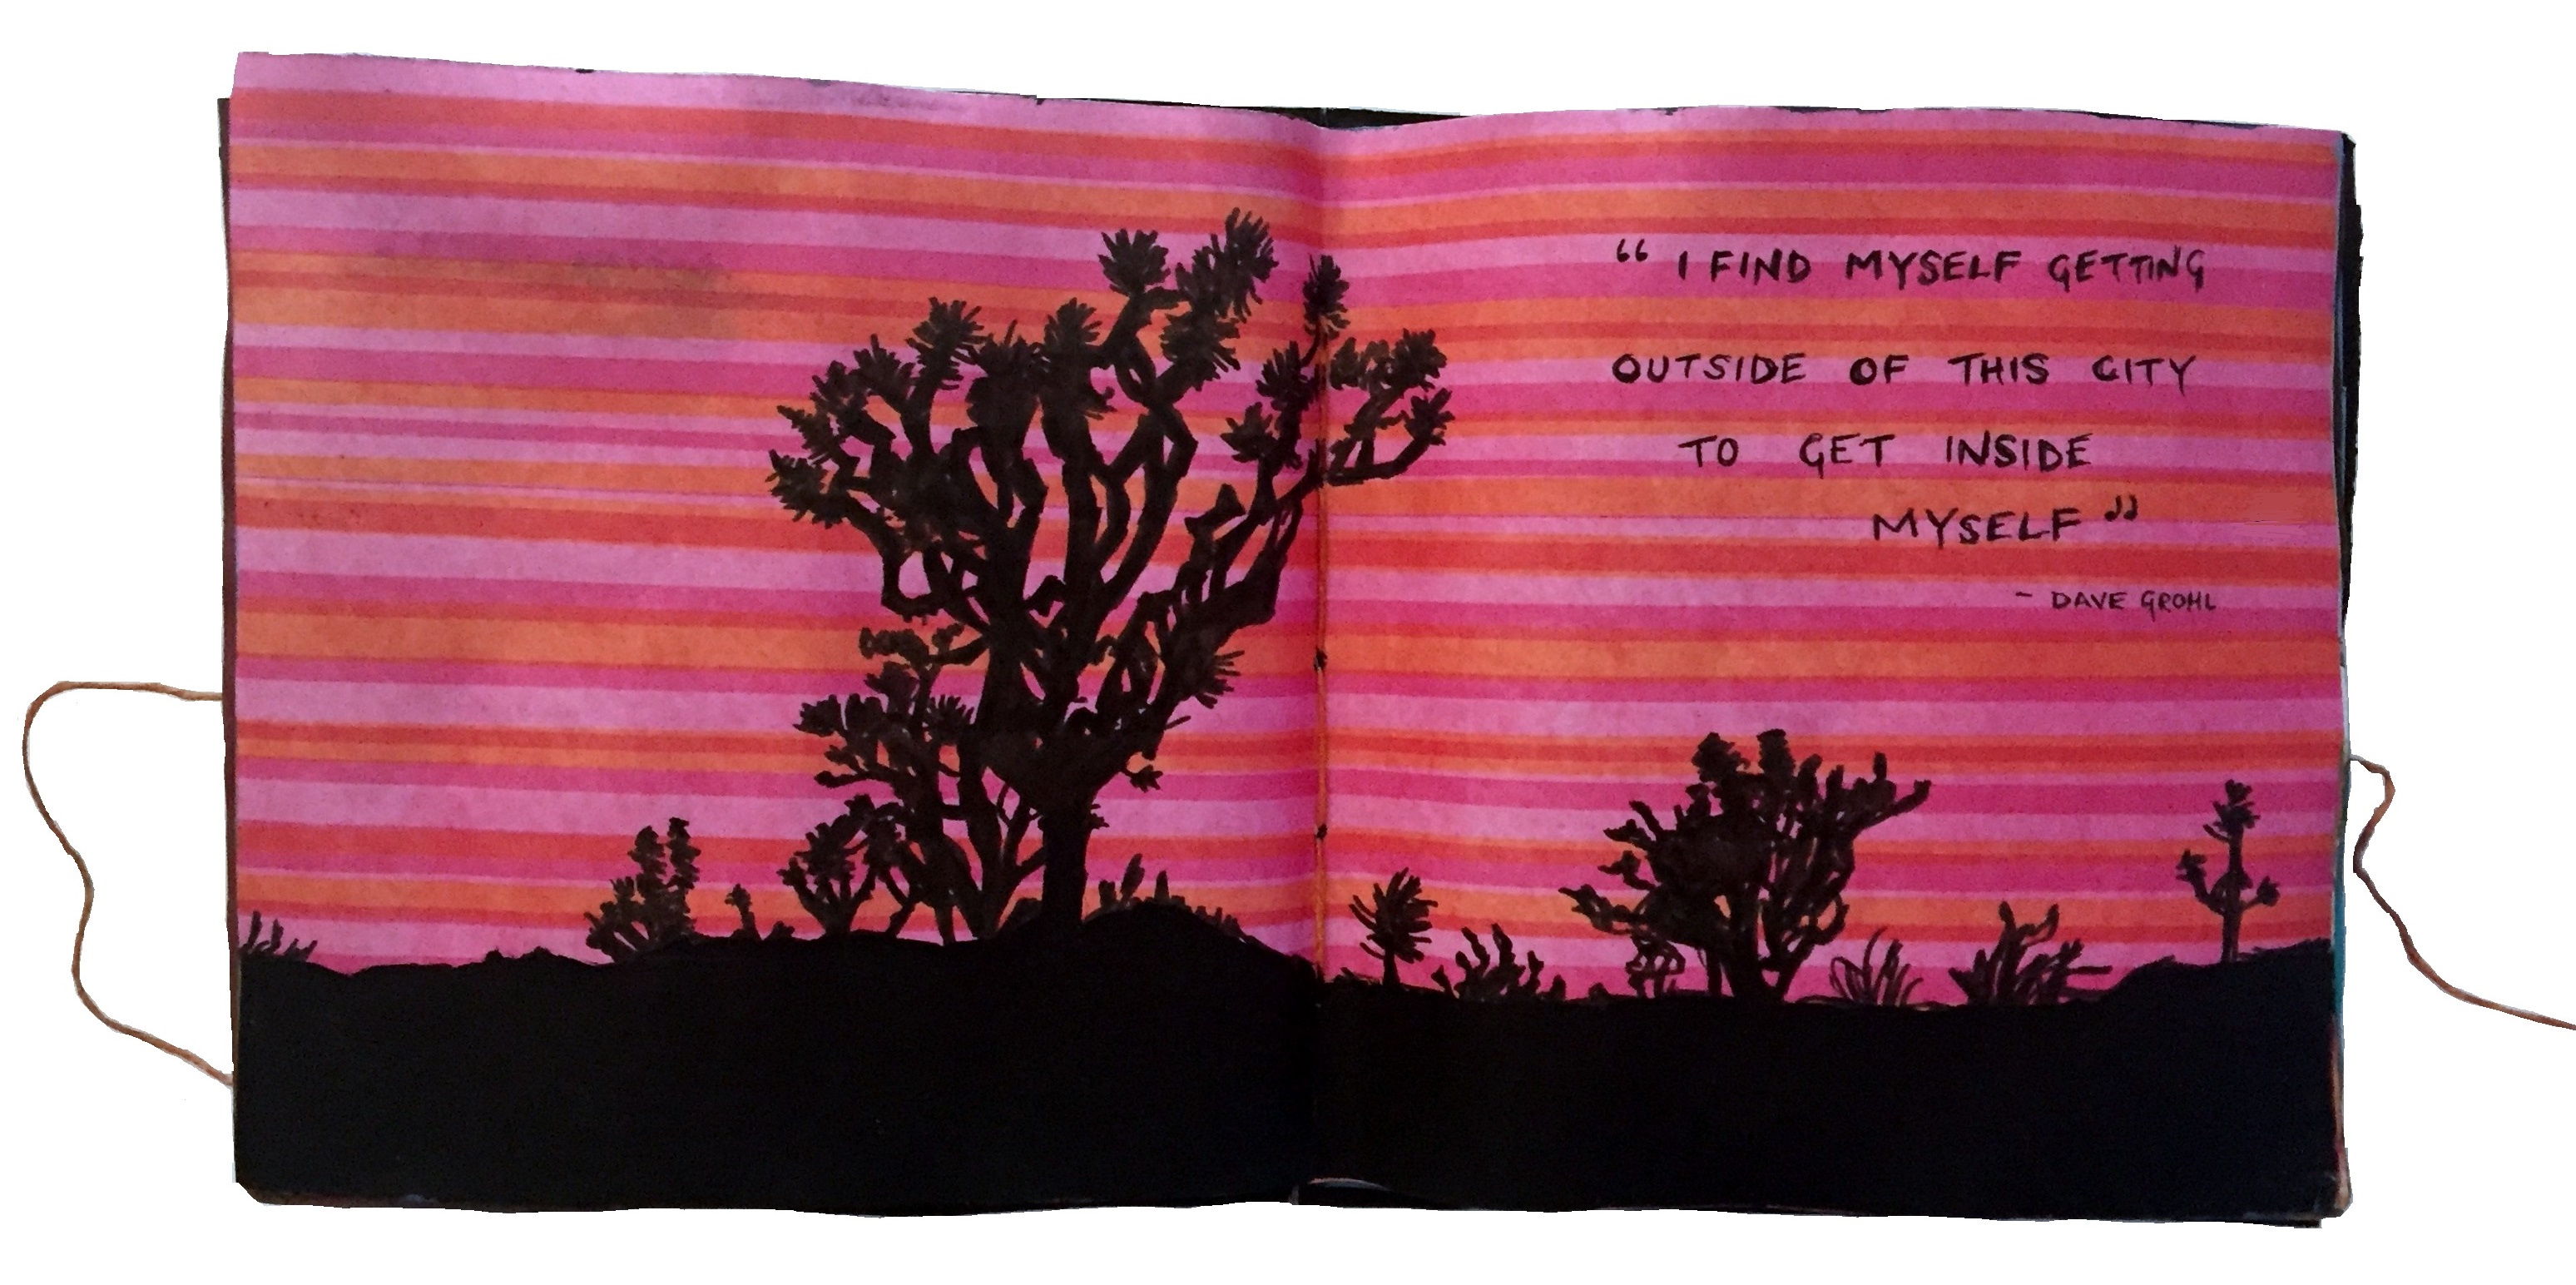 “ I FIND MYSELF GETTING
OUTSIDE OF THIS CITY
TO GET INSIDE
MYSELF ”
- DAVE GROHL